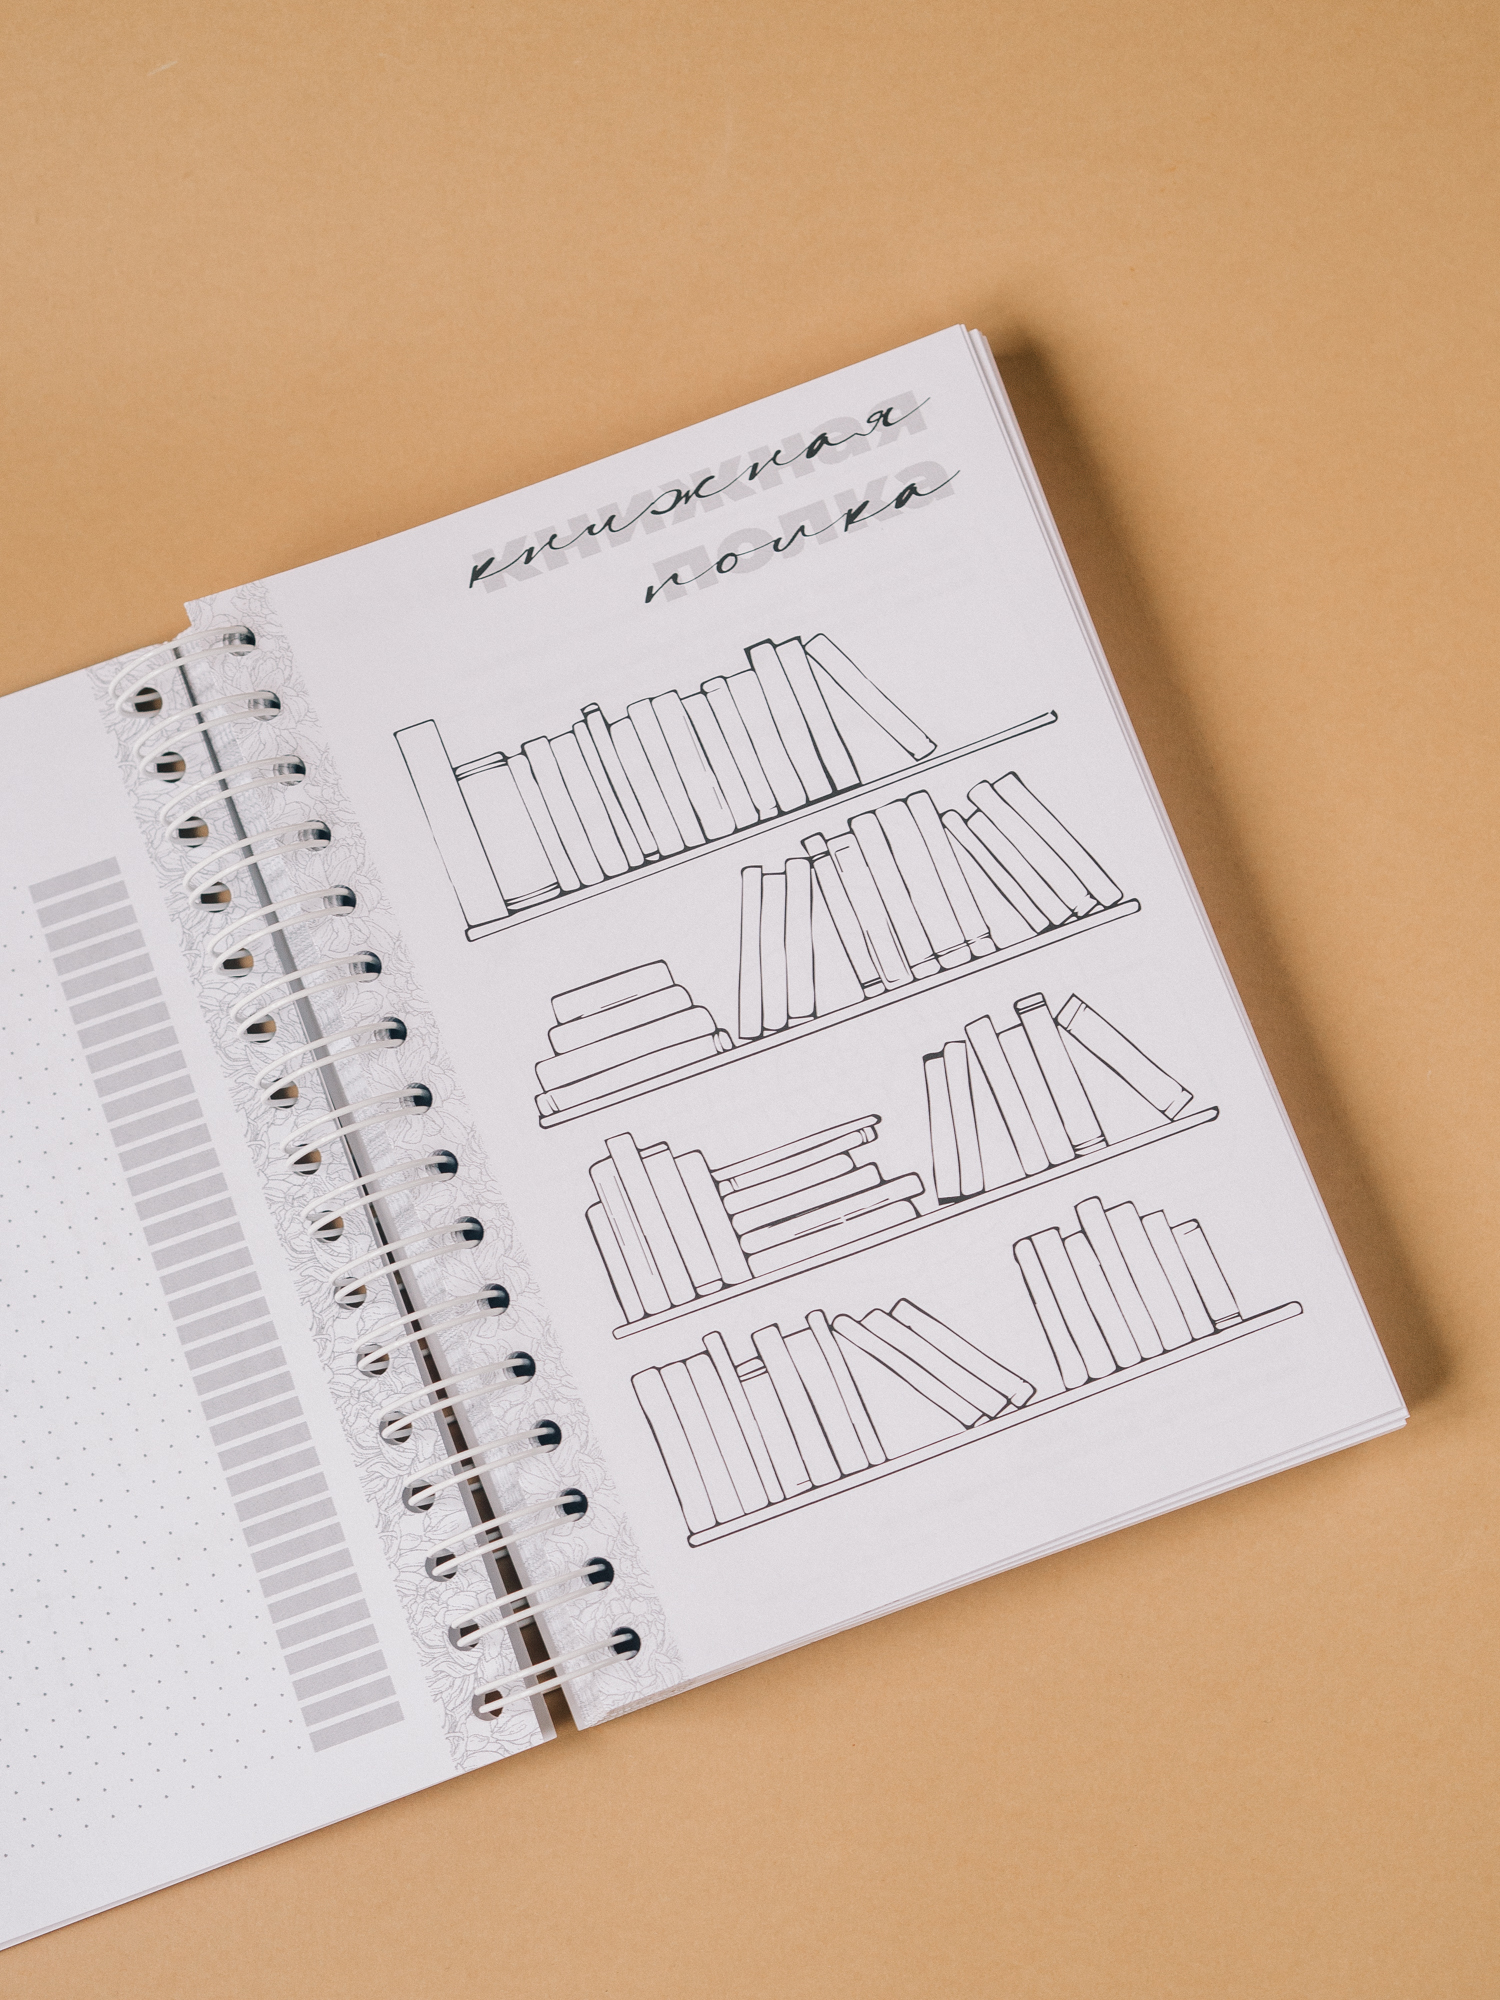 книжная
полка